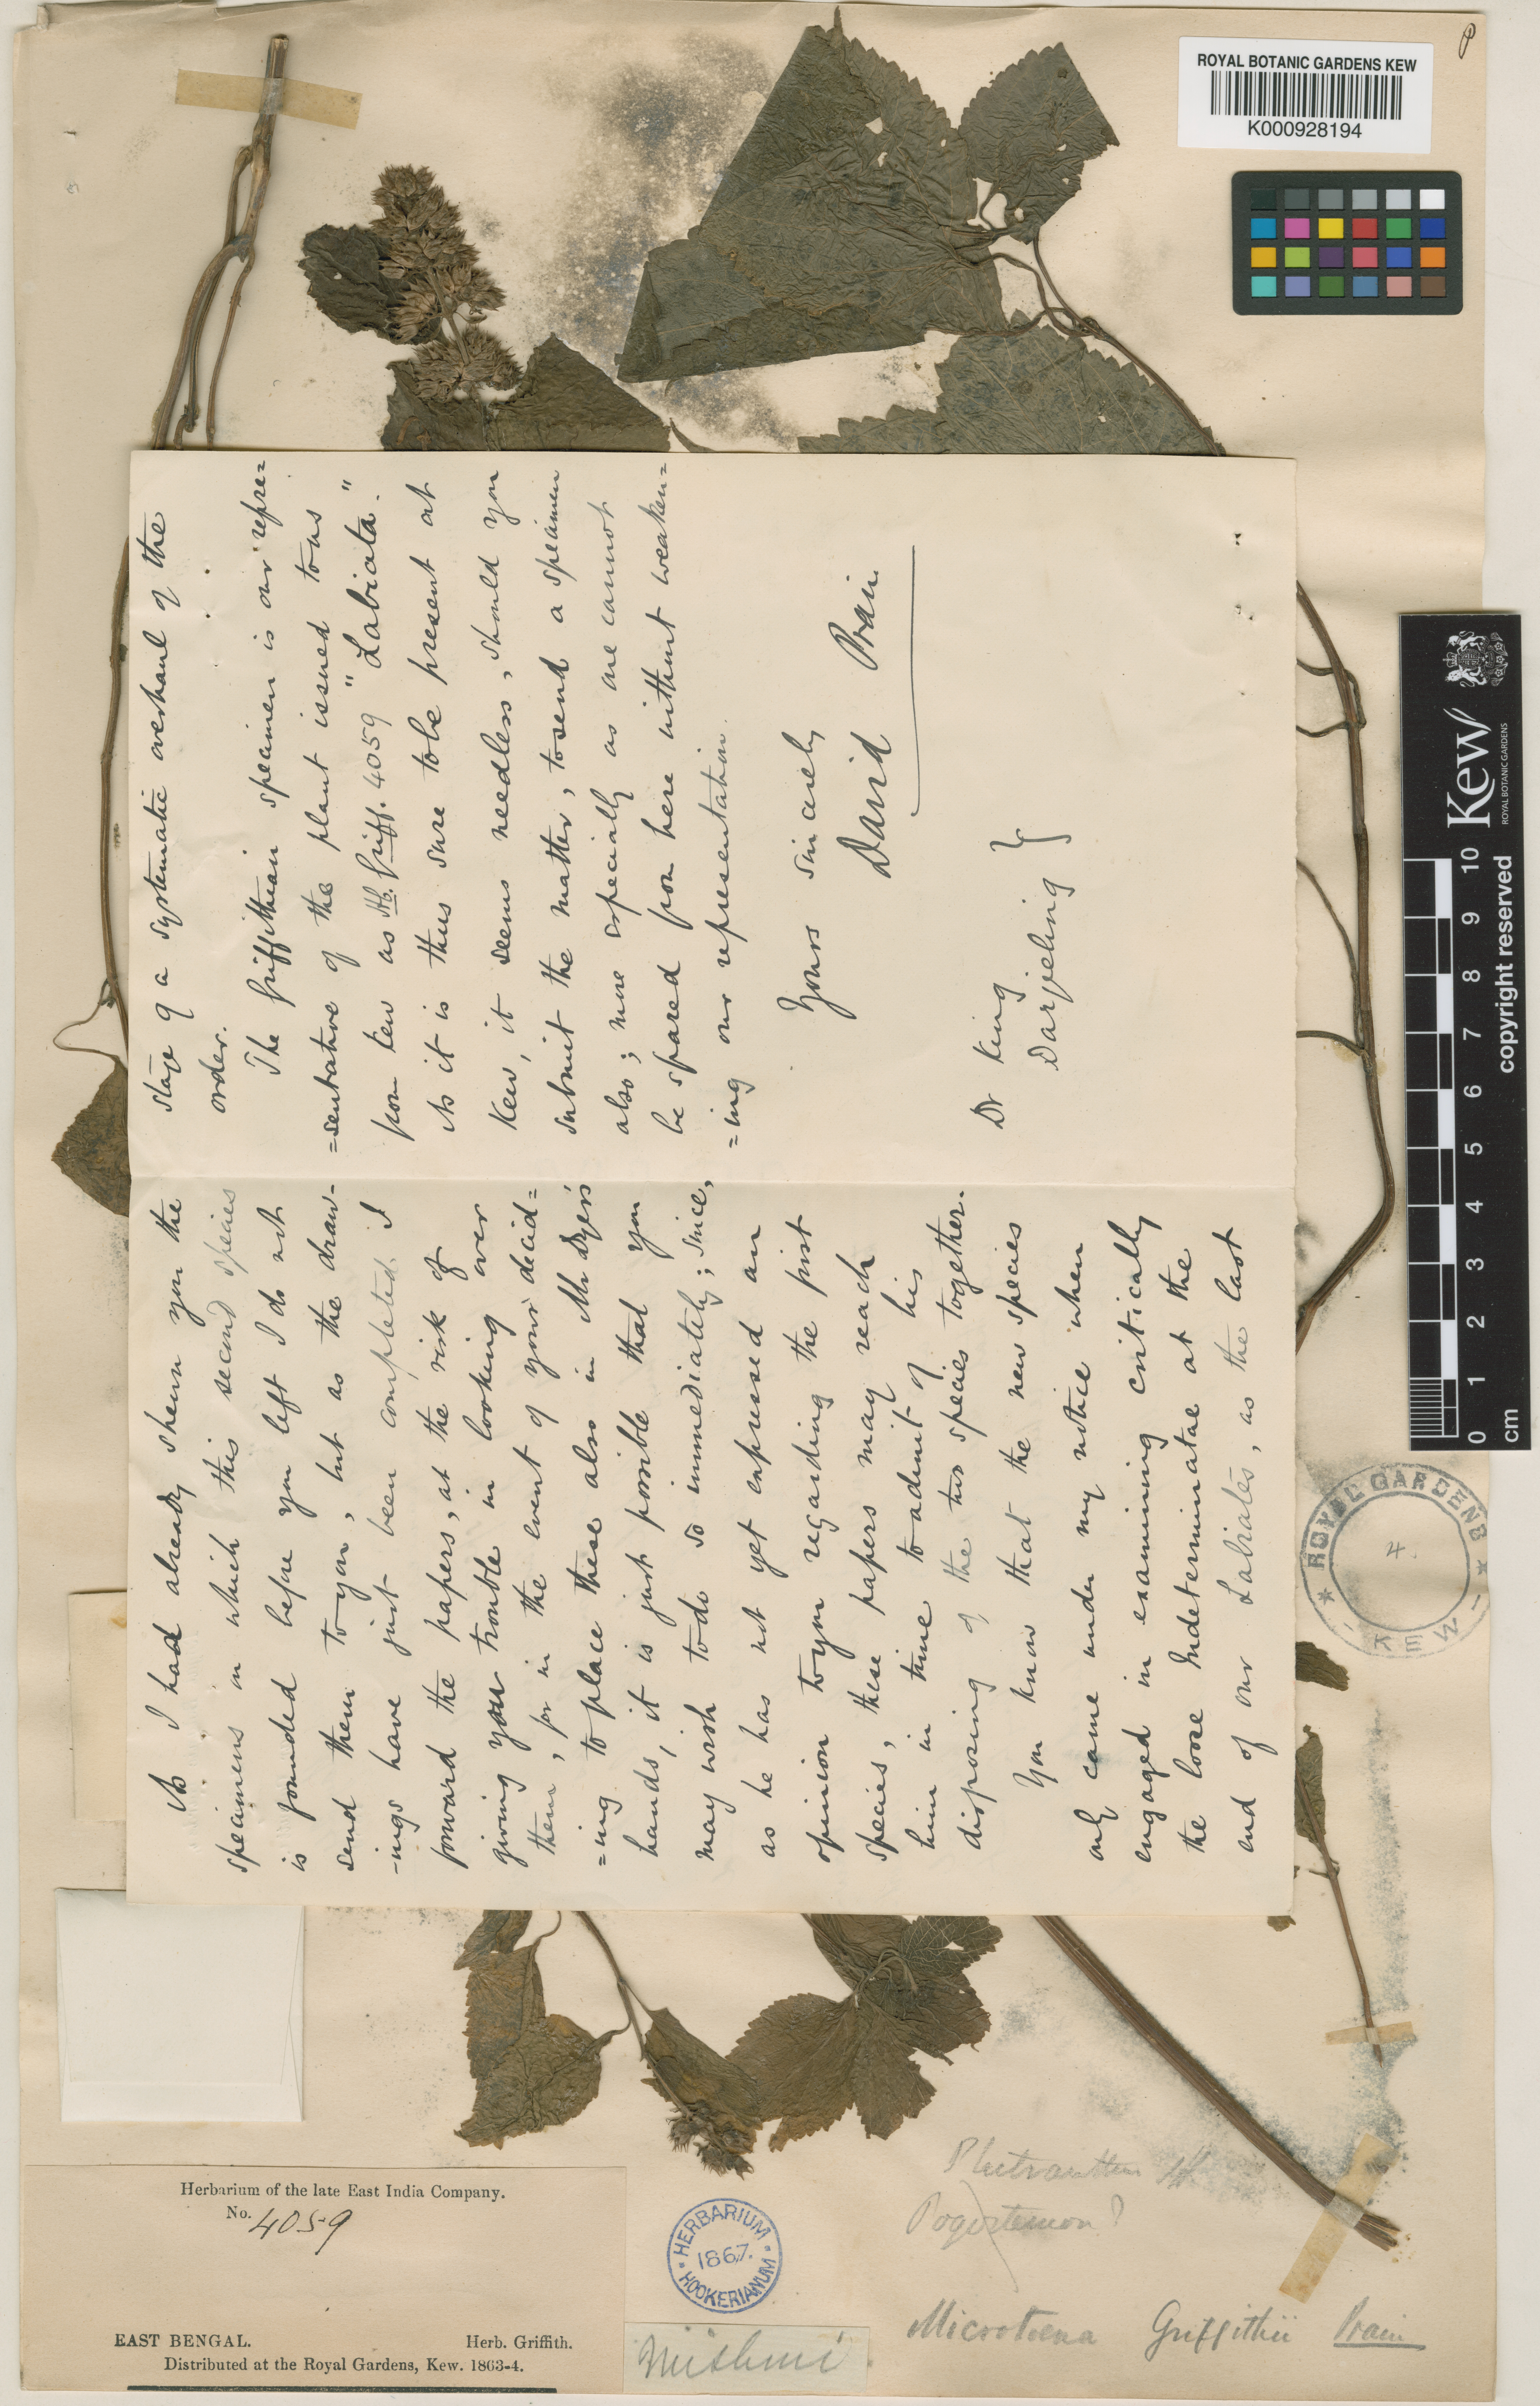 ROYAL BOTANIC GARDENS KEW
K000928194
As I had already shewn you the
specimens in which this second species
is founded before you left I do not
send them to you, but as the draw-
-ings have just been completed I
forward the papers, at the risk of
giving you trouble in looking over
them, for in the event of your decid=
=ing to place these also in Mr Dyer's
hands, it is just possible that you
may wish to do so immediately; since,
as he has not yet expressed an
opinion to you regarding the first
species, these papers may reach
him in time to admit of his
disposing of the two species together.
You know that the new species
only came under my notice when
engaged in examining critically
the loose Indeterminatae at the
end of our Labiates, as the last
stage of a systematic overhaul of the
order.
The Griffithian specimen is our repre=
=sentative of the plant issued to us
from Kew as Hb. Griff. 4059 "Labiata."
As it is thus sure to be present at
Kew, it seems needless, should you
submit the matter, to send a specimen
also; more especially as one cannot
be spared from here without weaken=
=ing our representation.
Yours sincerely
David Prain.
Dr King
Darjeeling
Kew
ROYAL BOTANIC GARDENS
copyright reserved
0 1 2 3 4 5 6 7 8 9 10
cm
ROYAL GARDENS
KEW
4.
Herbarium of the late East India Company.
No. 4059
EAST BENGAL. Herb. Griffith.
Distributed at the Royal Gardens, Kew. 1863-4.
HERBARIUM
1867.
HOOKERIANUM
Mishmi
Plectranthus
Pogostemon?
Microtoena Griffithii Prain